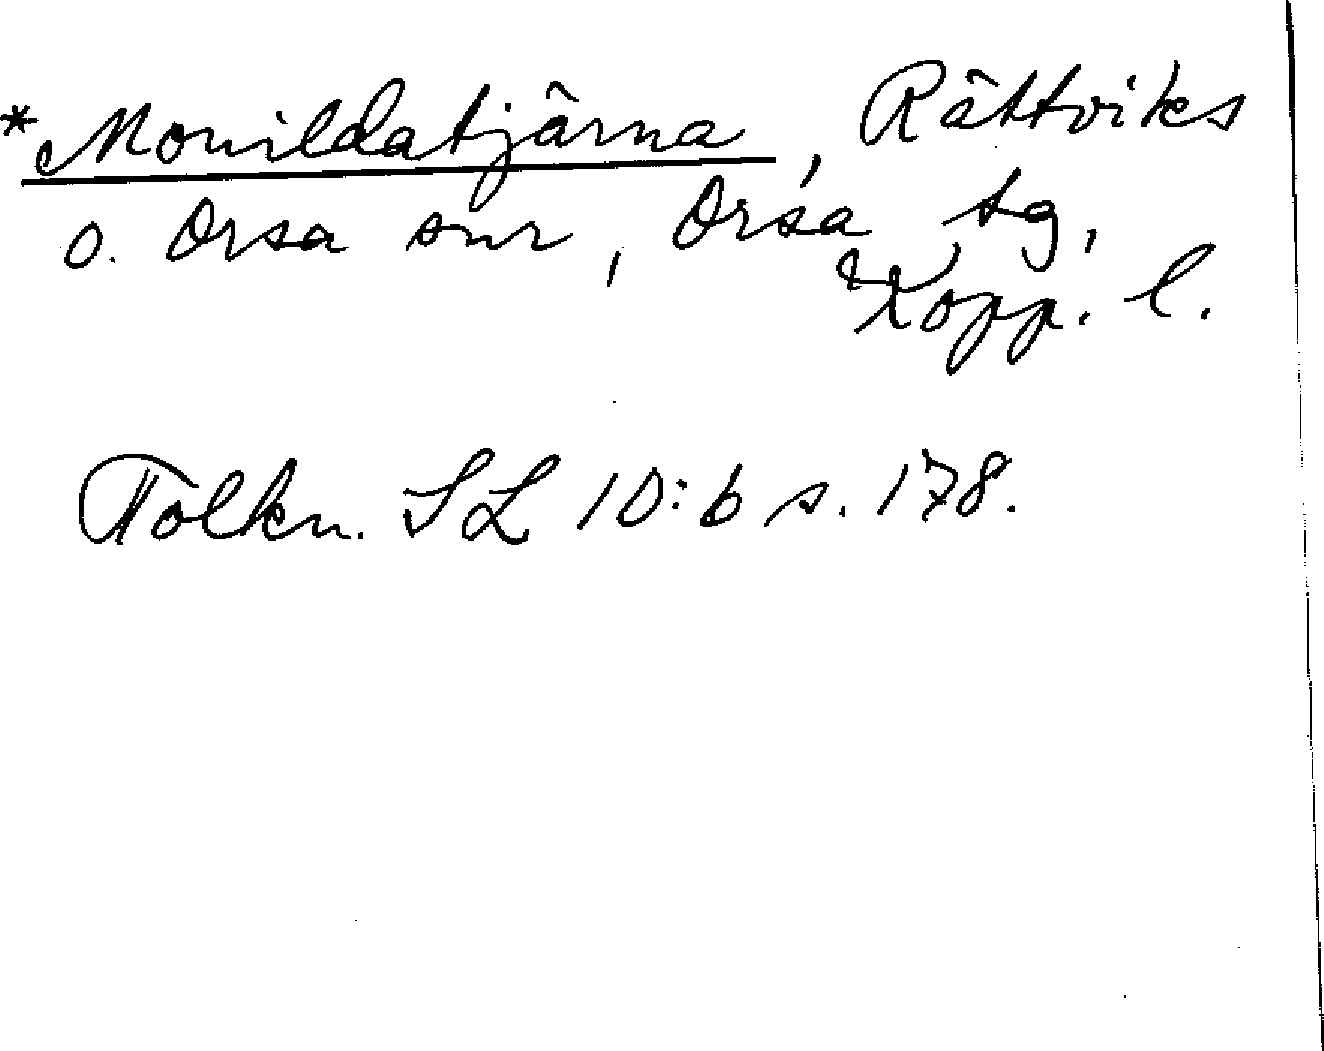 *Monildatjärna, Rättviks
o. Orsa snr, Orsa tg,
Kopp. l.
Tolkn. SL 10:b s. 178.